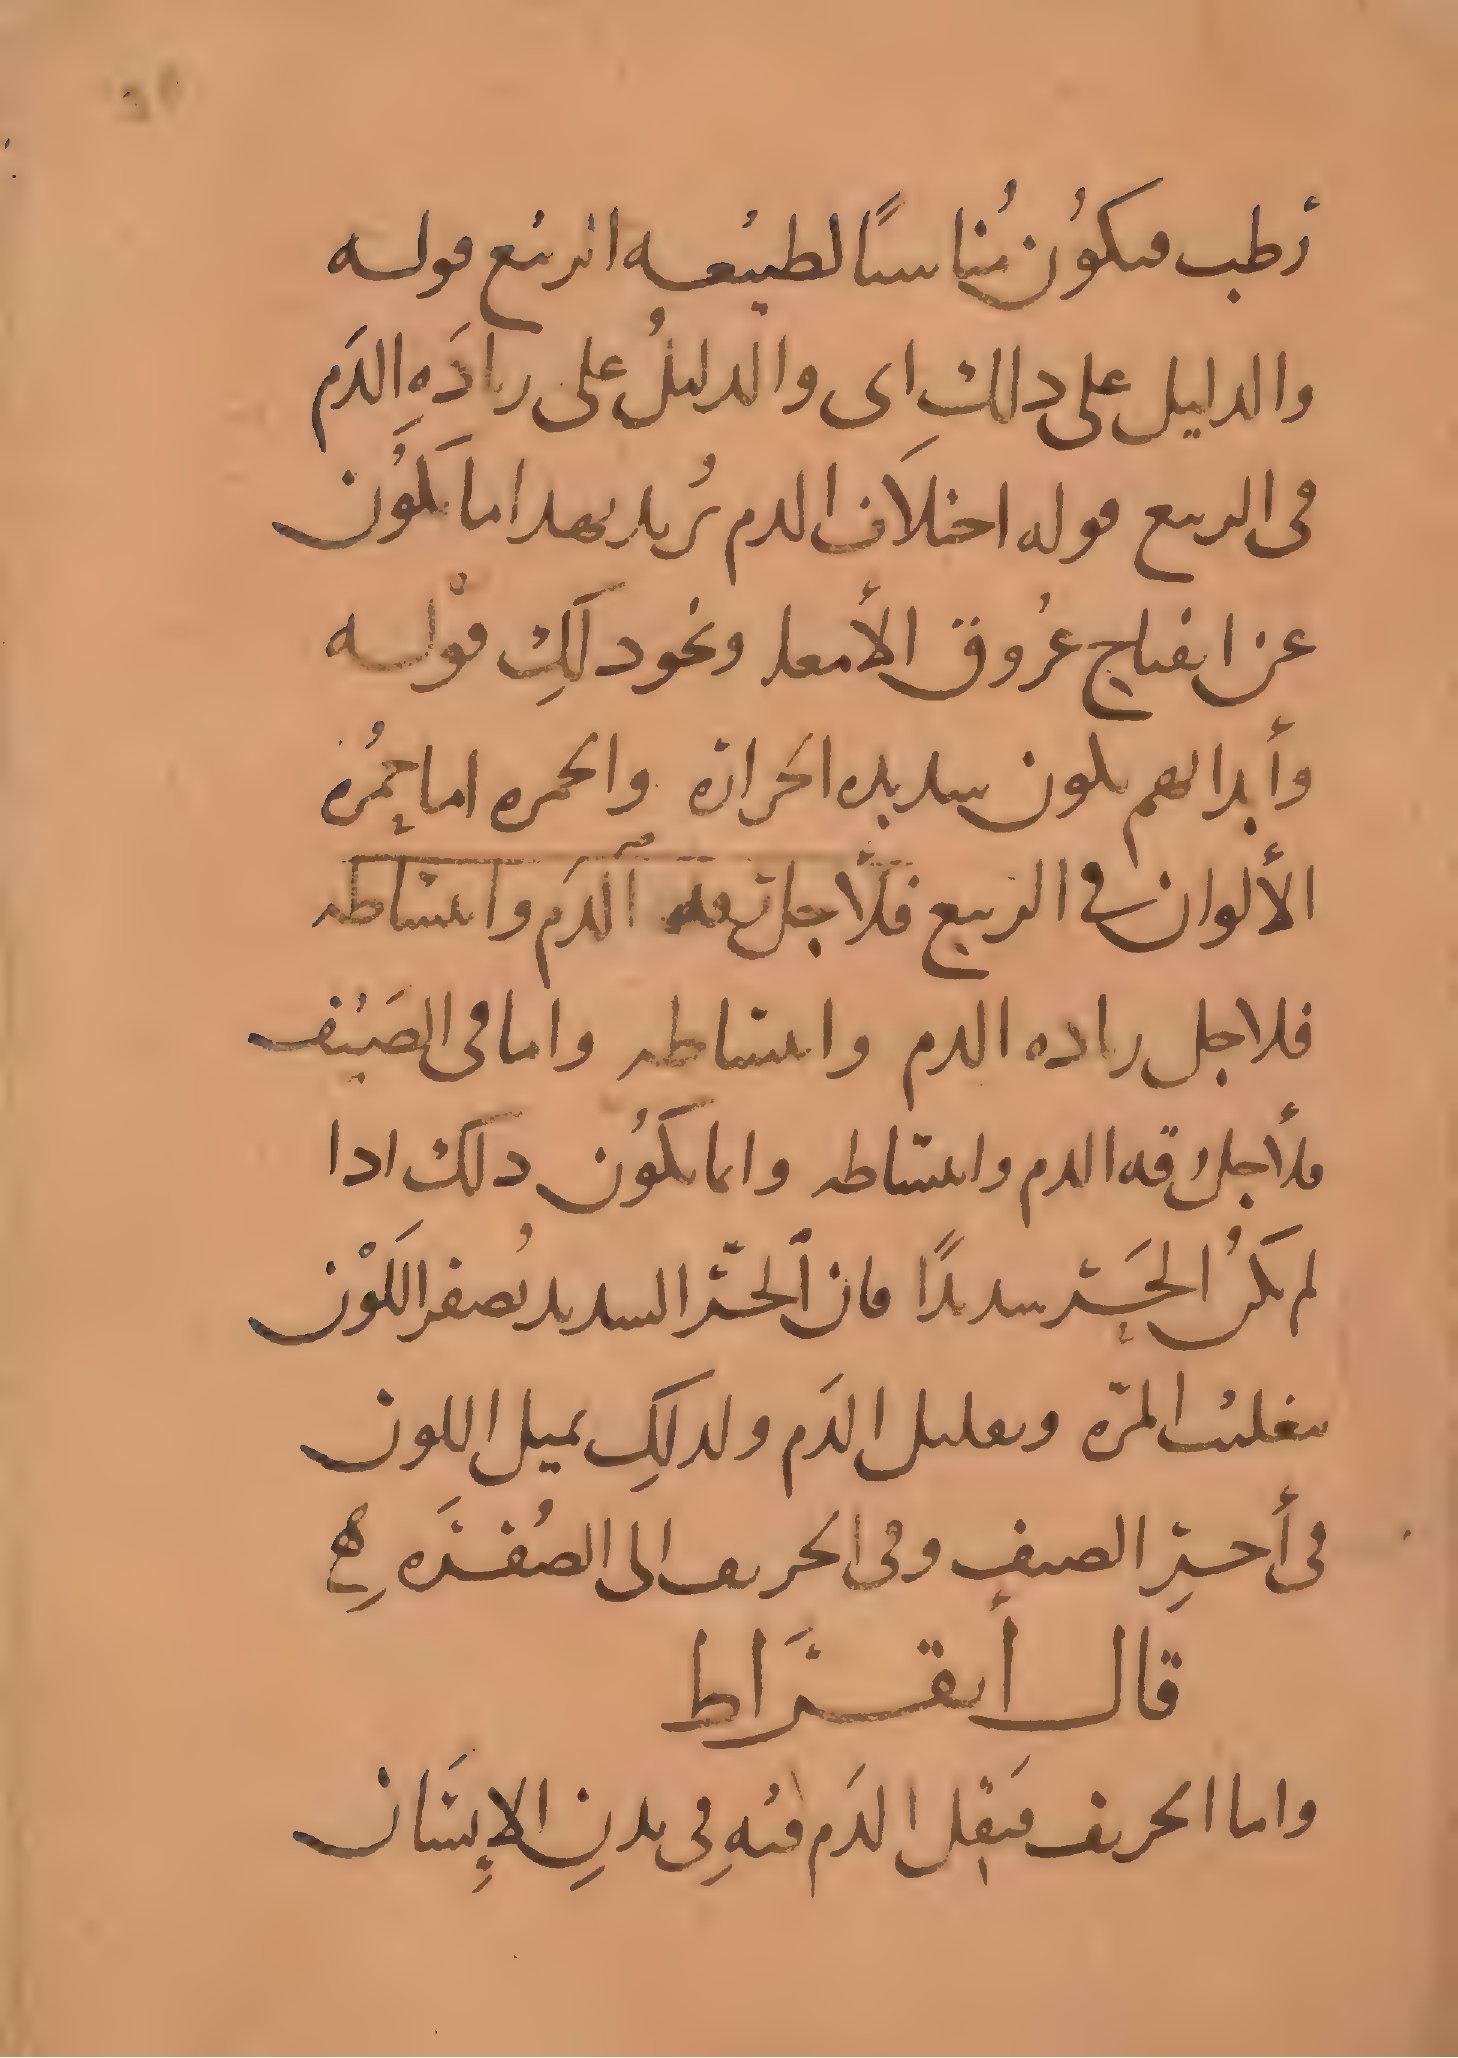 رطب فيكون مُناسبًا لطبيعه الربيع قوله
والدليل على دلك اى والدليلُ على زيادَهِ الدَم
فى الربيع قوله اختلاف الدم يُريد بهدا ما يكَوُن
عن انفتاح عُروق الأمعا ونحو دلَكِ قوْله
وأبدانهم تلون شديده الحرارة والحمره اما حُمرة
الألوان في الربيع فلأجل رقه الدَم وانبساطه
فلاجل زياده الدم وانبساطه واما فى الصَيف
فلأجل رقه الدم وانبساطه وانما يكَوُن دلك ادا
لم يكَنُ الحَر شديدًا فان الحرّ الشديد يُصفر اللَوْن
بتغليب المرّه وتقليل الدَم ولدلَكِ يميل اللون
فى أخرِ الصيف وفى الخريف الى الصُفرَه
قال أبقرَاط
واما الخريف فيَقل الدَم فيهِ فى بدنِ الإنسَان